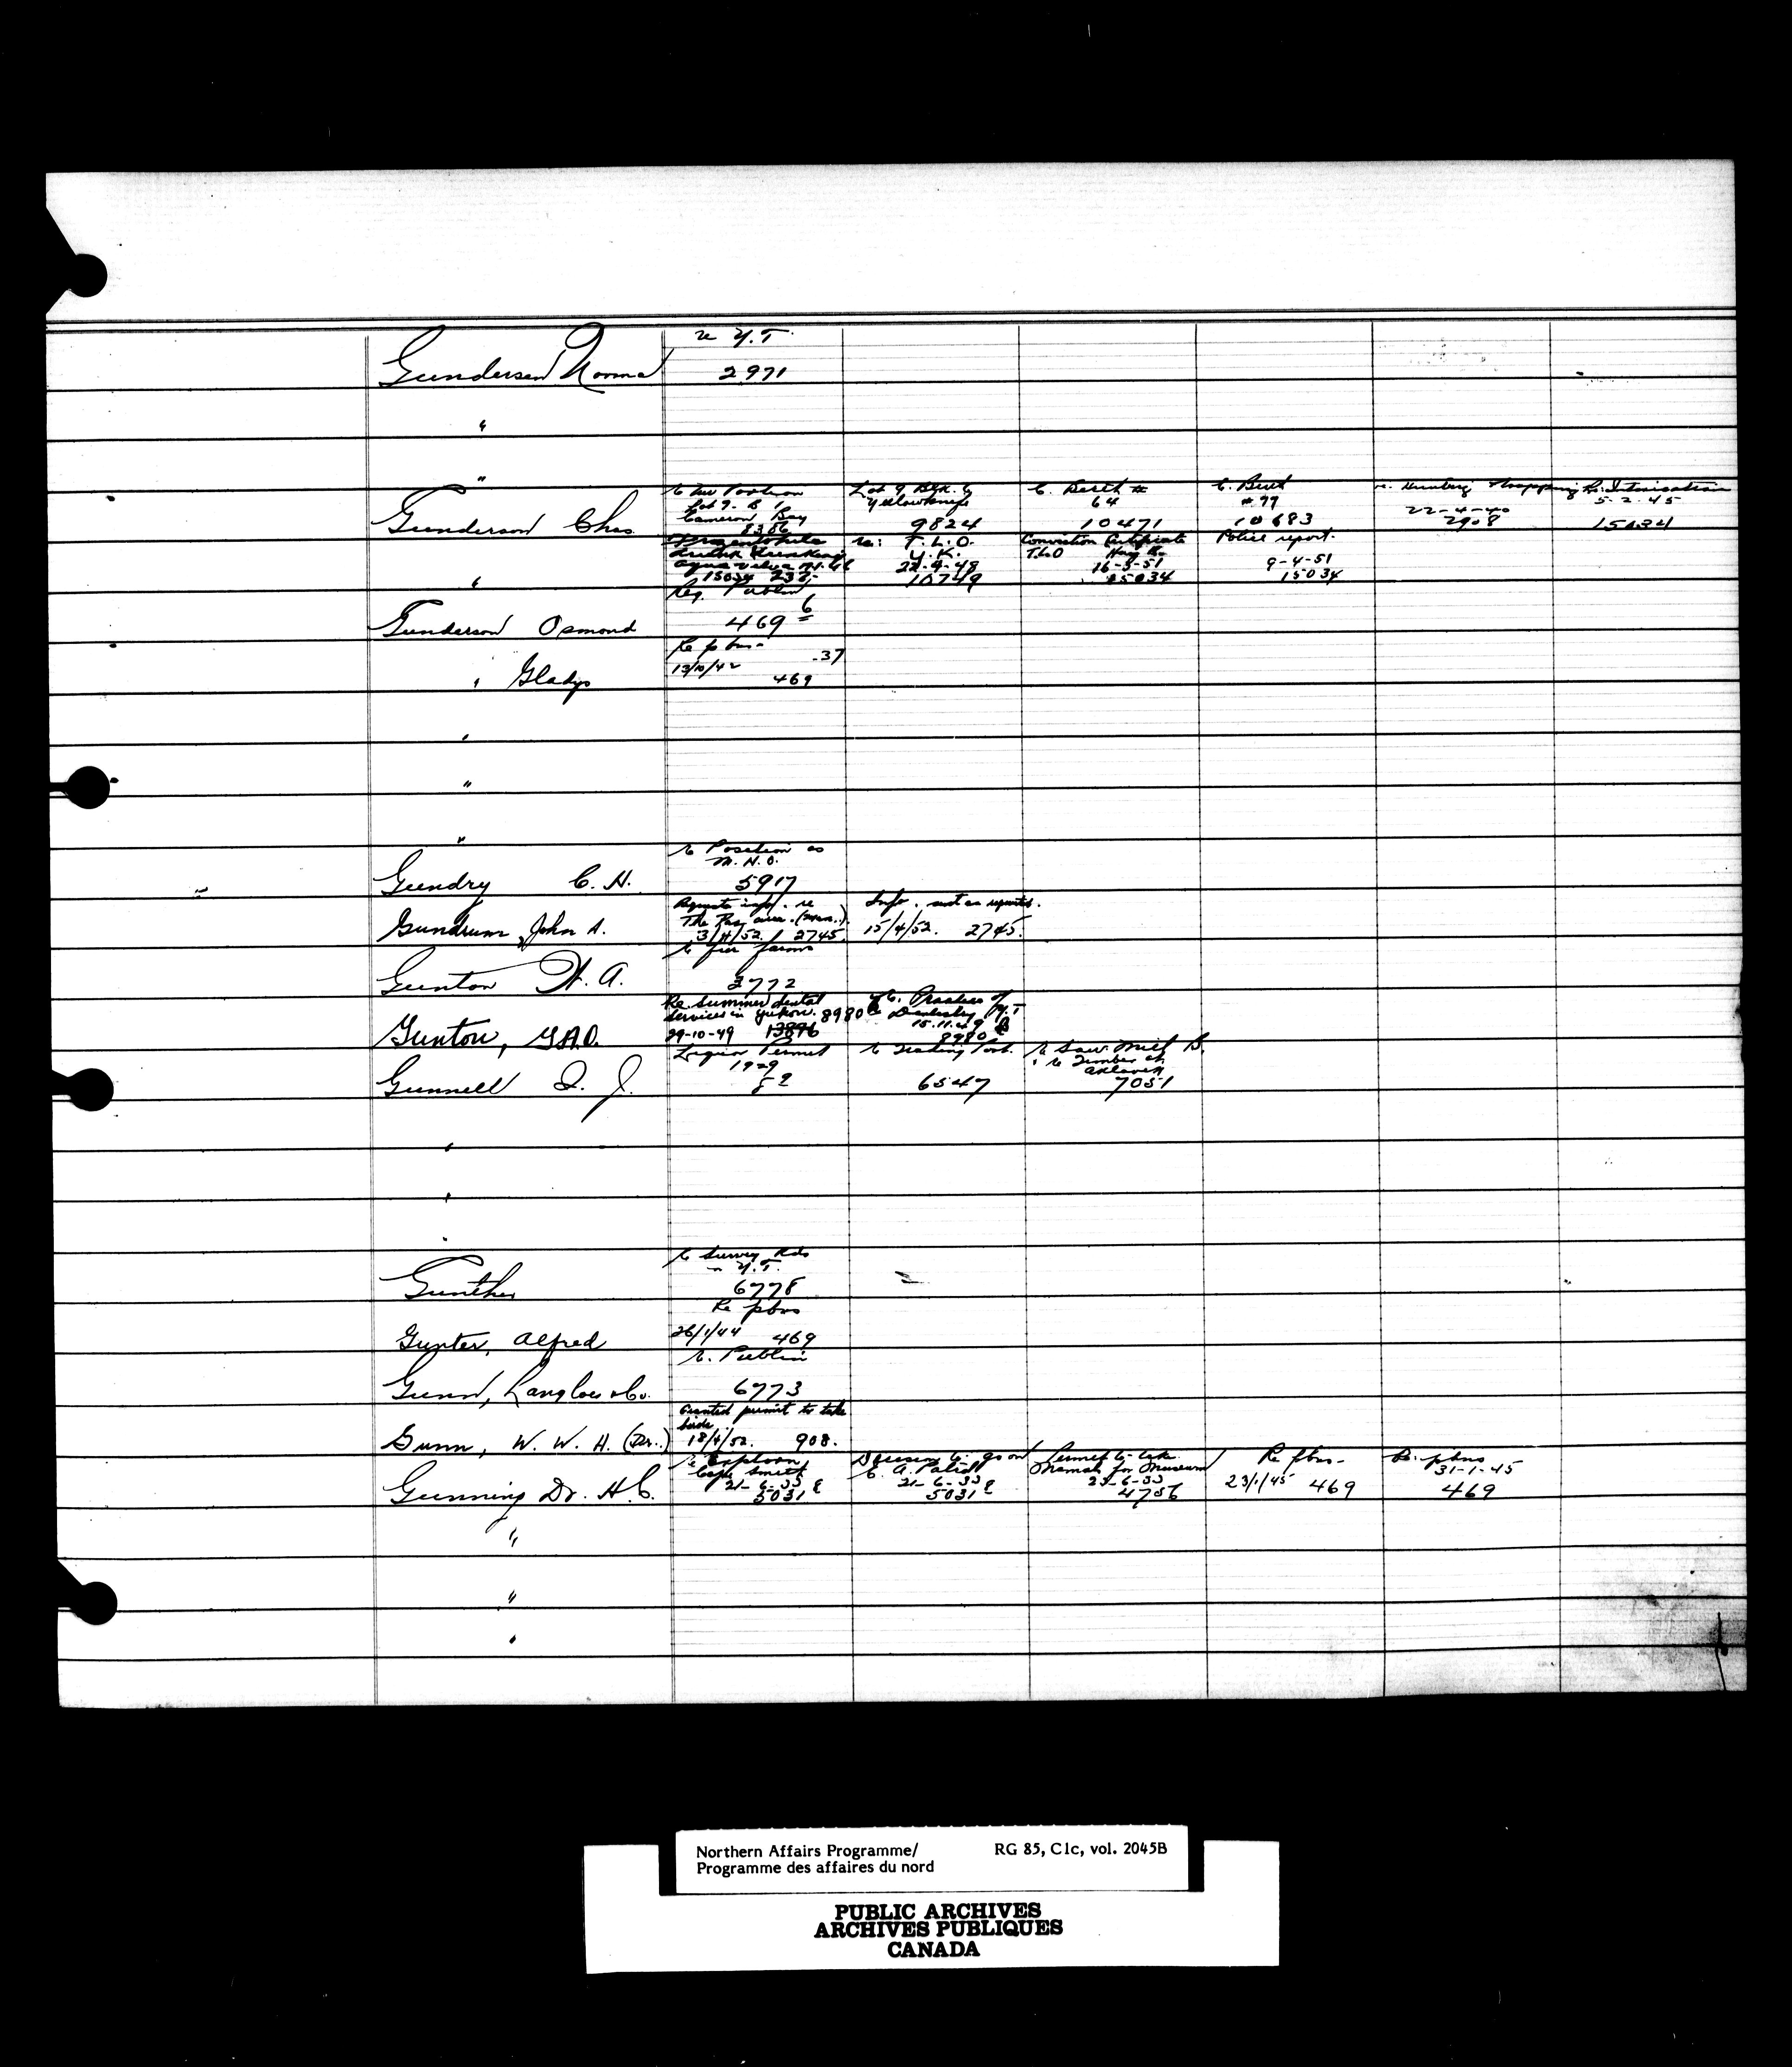 Gundersen Norma
re Y.T.
2971
"
"
Gunderson Chas
Lot 9. B 1
Cameron Bay
8386
Lot 9 Blk. 6
Yellowknife
9824
T. Berth #
64
10471
T. Berth
#77
10683
re. Hunting & trapping
22-4-40
2908
Re. Intoxication
5-2-45
15034
"
15034
re: T.L.O.
Y.K.
22-9-48
10749
Conviction Certificate
T.L.O Hay R.
16-3-51
15034
Police report.
9-4-51
15034
Gunderson Osmond
Req. Publin
469 6
" Gladys
Re pbns-
13/10/42 -37
469
"
"
"
Gundry C. H.
re Position as
M. H. O.
5917
Gundrum, John A.
Requests info. re
The Pas area. (Man.).
3/4/52 2745.
Info. sent as requested.
15/4/52. 2745.
Gunton H. A.
re fur farms
3772
Gunton, G.A.O.
Re. Summer dental
Services in Yukon. 8980
29-10-49 13896
re. Practice of
Dentistry Y.T
15.11.49
8980
Gunnell I. J.
Liquor Permit
1929
re Trading Post.
6547
re Saw Mill B.
& re Timber at
Aklavik
7051
"
"
"
Gunther
re Survey Rds
in Y.T.
6778
Gunter, Alfred
Re pbns
26/1/44 469
Gunn, Langlois & Co.
re. Publin
6773
Gunn, W. W. H. (Dr..)
Granted permit to take
birds
18/4/52. 908.
Gunning Dr. H. C.
re Explorn
Capt Smith
21-6-33
5031
21-6-33
5031
Permit to take
Mamals for Museum
23-6-33
4756
Re pbns-
23/1/45 469
Re. pbns
31-1-45
469
"
"
"
Northern Affairs Programme/ RG 85, C1c, vol. 2045B
Programme des affaires du nord
PUBLIC ARCHIVES
ARCHIVES PUBLIQUES
CANADA